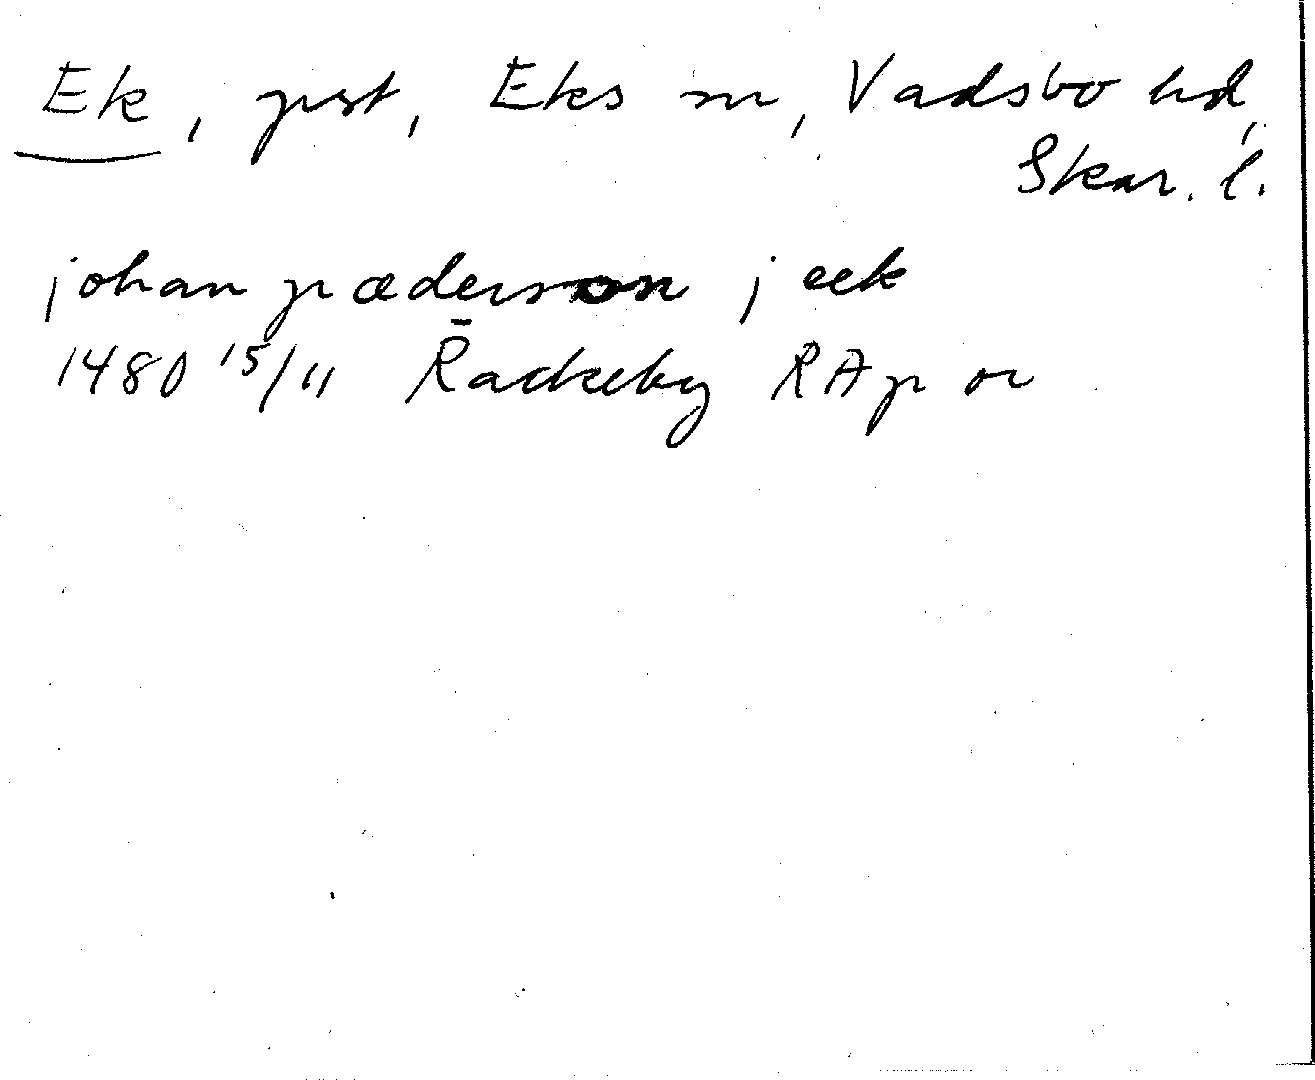 Ek, prst, Eks sn, Vadsbo hd,
Skar. l.
johan pædersson j eek
1480 15/11 Rackeby RAp or